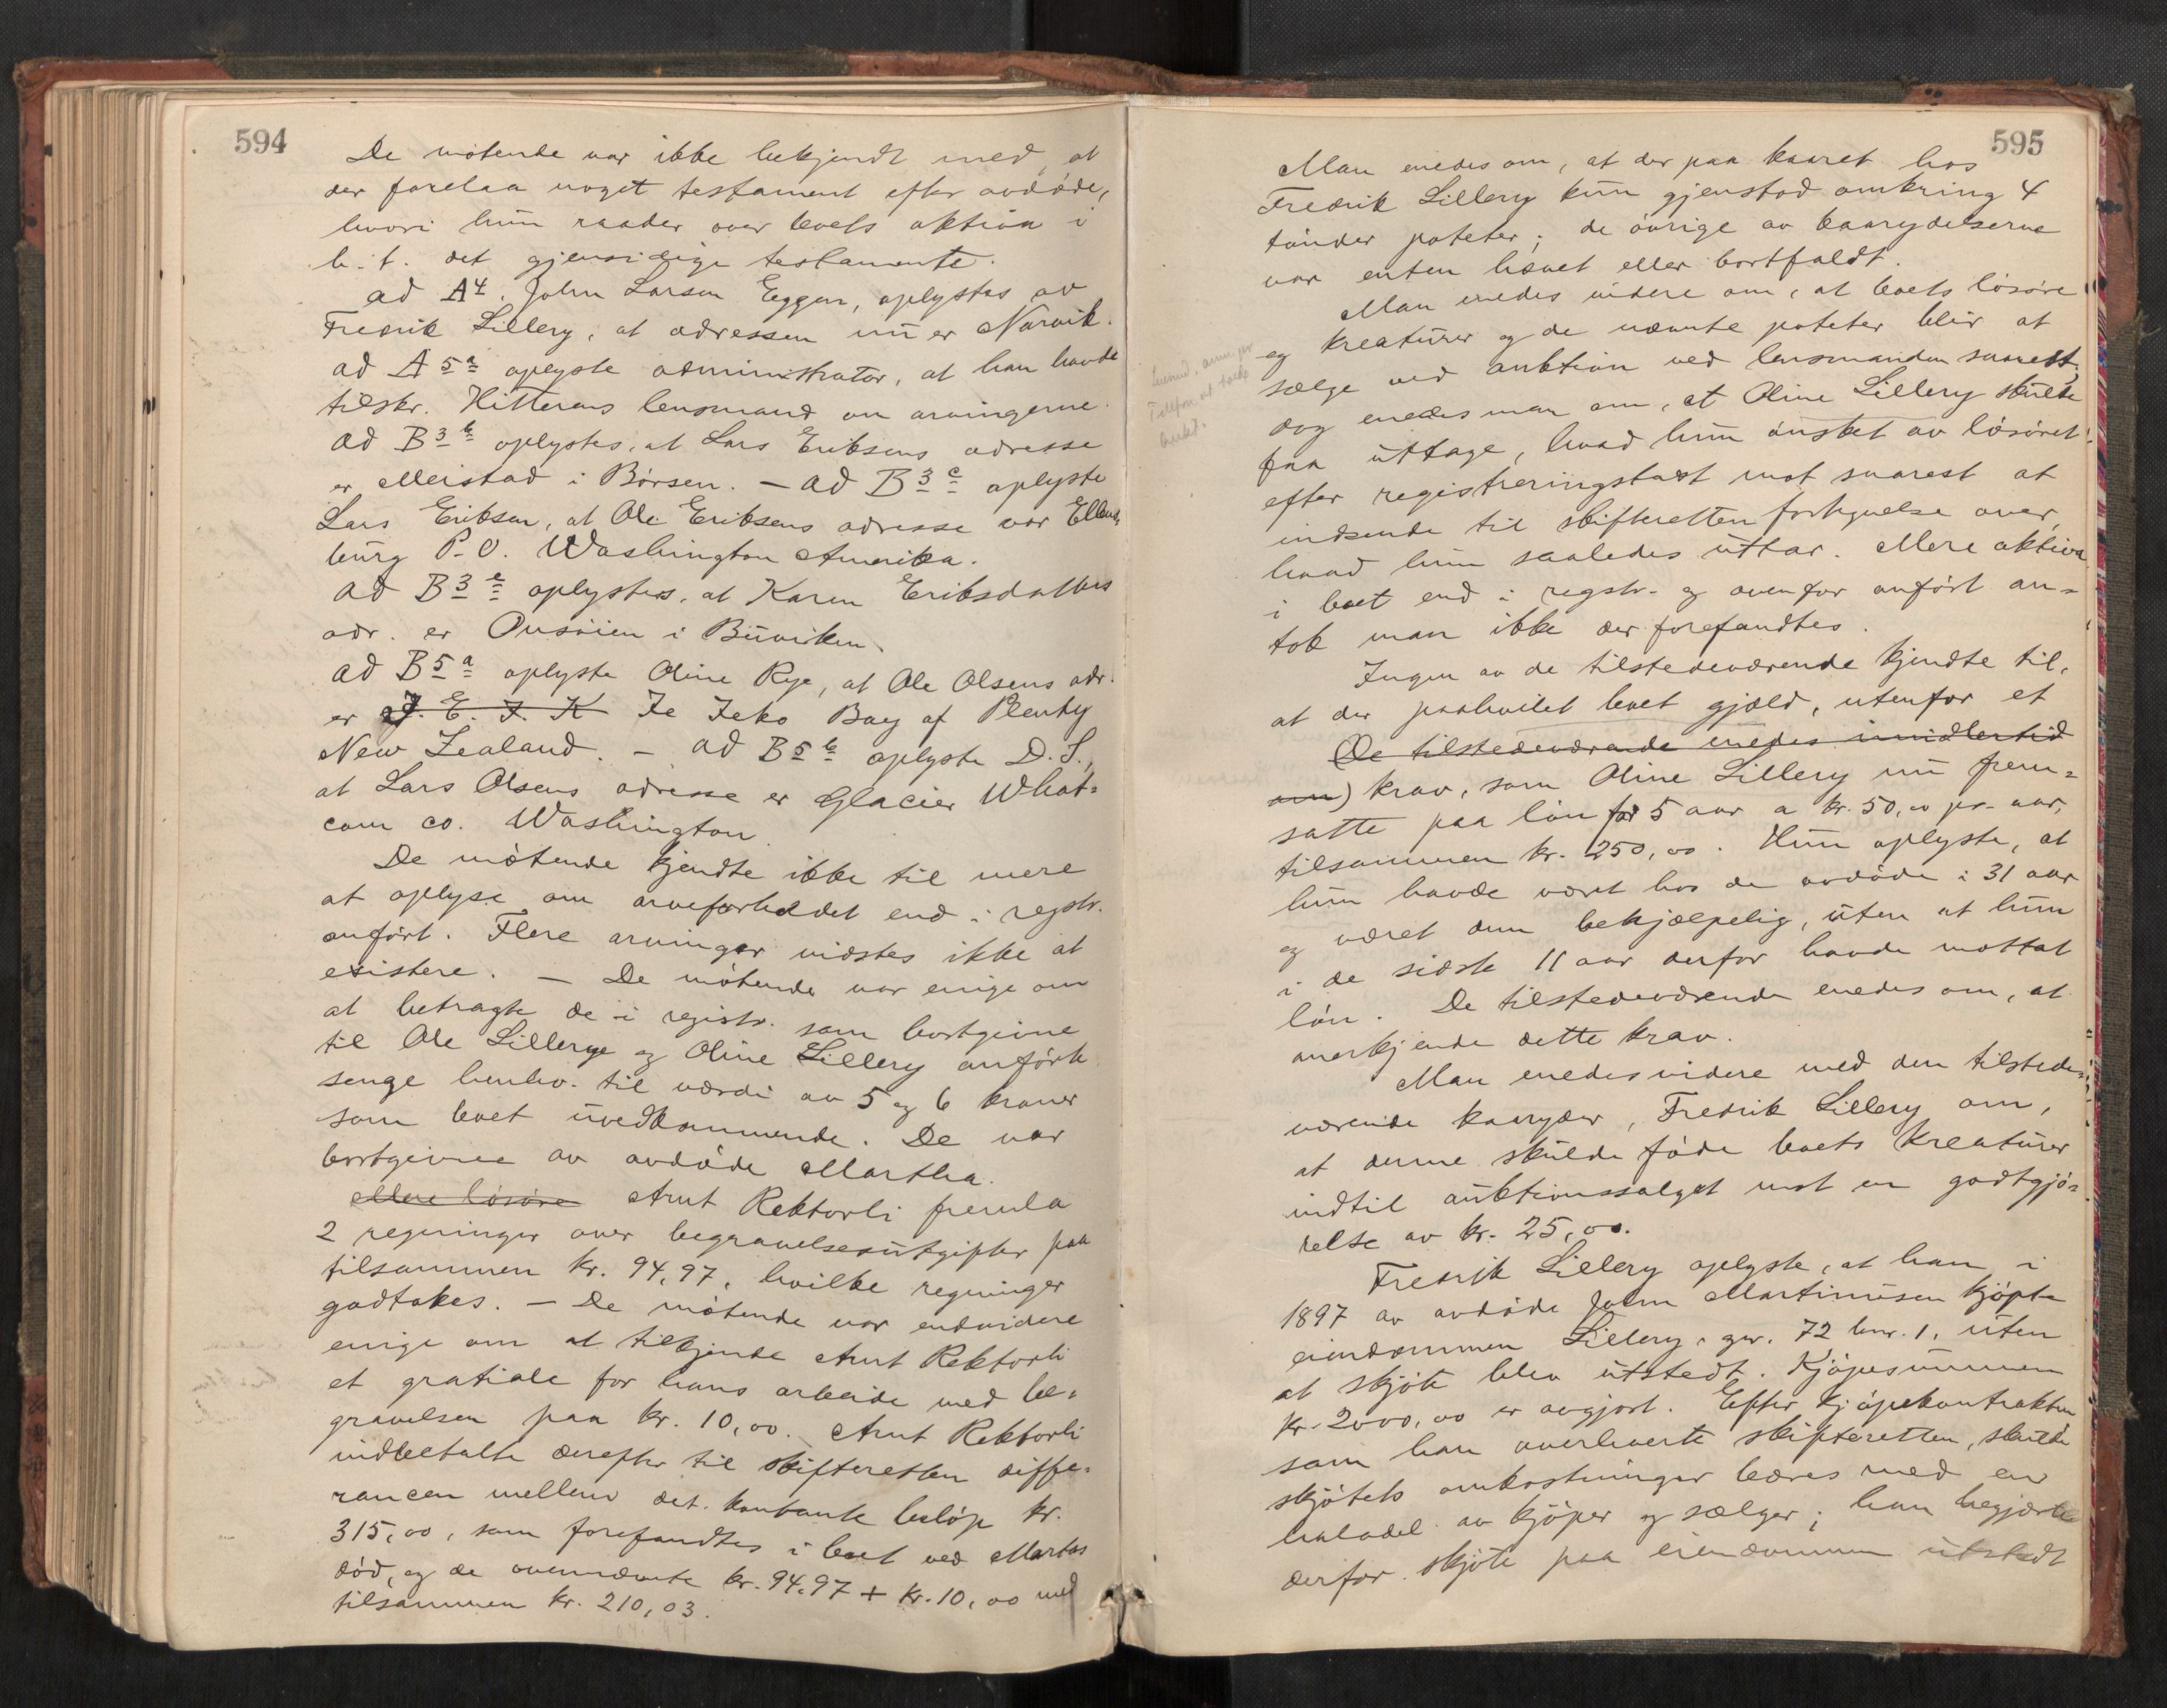 594
De møtende var ikke bekjendt med, at
der forelaa noget testament efter avdøde,
hvori hun raader over boets aktiva i
h. t. det gjensidige testamente.
ad A 4. John Larsen Eggen, oplystes av
Fredrik Lillery, at adressen nu er Narvik.
ad A 5 a oplyste administrator, at han havde
tilskr. Hitterens lensmand om arvingerne.
ad B 3 b oplystes, at Lars Eriksens adresse
er Meistad i Børsen. – ad B 3 c oplyste
Lars Eriksen, at Ole Eriksens adresse var Ellens
burg P. O. Washington Amerika.
ad B 3 e oplystes, at Karen Eriksdatters
adr. er Onsøien i Buviken.
ad B 5 a oplyste Oline Rye, at Ole Olsens adr.
er J. E. J. K Te Teko Bay of Plenty
New Zealand. – ad B 5 b oplyste D. S.,
at Lars Olsens adresse er Glacier What-
com co. Washington
De møtende kjendte ikke til mere
at oplyse om arveforholdet end i regstr.
anført. Flere arvinger vidstes ikke at
existere. – De møtende var enige om
at betragte de i registr. som bortgivne
til Ole Lillery og Oline Lillery anførte
senge henhv. til værdi av 5 og 6 kroner
som boet uvedkommende. De var
bortgivne av avdøde Martha.
Mere løsøre Arnt Rektorli fremla
2 regninger over begravelsesutgifter paa
tilsammen kr. 94,97, hvilke regninger
godtokes. – De møtende var endvidere
enige om at tilkjende Arnt Rektorli
et gratiale for hans arbeide med be-
gravelsen paa kr. 10,00. Arnt Rektorli
indbetalte derefter til skifteretten diffe-
rancen mellem det kontante beløp kr.
315,00, som forefandtes i boet ved Martas
død, og de ovennævnte kr. 94,97 + kr. 10,00 med
tilsammen kr. 210,03.
595
Man enedes om, at der paa kaaret hos
Fredrik Lillery kun gjenstod omkring 4
tønder poteter; de øvrige av kaarydelserne
var enten hævet eller bortfaldt.
Man enedes videre om, at boets løsøre
og kreaturer og de nævnte poteter blir at
sælge ved auktion ved lensmanden snarest,
dog enedes man om, at Oline Lillery skulde
faa uttage, hvad hun ønsket av løsøret
efter registreringstakst mot snarest at
indsende til skifteretten fortegnelse over,
hvad hun saaledes uttar. Mere aktiva
i boet end i regstr. og ovenfor anført an-
tok man ikke der forefandtes.
Ingen av de tilstedeværende kjendte til,
at der paahvilet boet gjæld, utenfor et
(De tilstedeværende enedes imidlertid
om) krav, som Oline Lillery nu frem-
satte paa løn for 5 aar a kr. 50,00 pr. aar,
tilsammen kr. 250,00. Hun oplyste, at
hun havde været hos de avdøde i 31 aar
og været dem behjælpelig, uten at hun
i de sidste 11 aar derfor havde mottat
løn. De tilstedeværende enedes om, at
anerkjende dette krav.
Man enedes videre med den tilstede-
værende kaaryder, Fredrik Lillery om,
at denne skulde føde boets kreaturer
indtil auktionssalget mot en godtgjø-
relse av kr. 25,00.
Fredrik Lillery oplyste, at han i
1897 av avdøde John Martinusen kjøpte
eiendommen Lillery, gnr. 72 bnr. 1, uten
at skjøte blev utstedt. Kjøpesummen
kr. 2000,00 er avgjort. Efter kjøpekontrakten
som han overleverte skifteretten, skulde
skjøtets omkostninger bæres med en
halvdel av kjøper og sælger; han begjærte
derfor skjøte paa eiendommen utstedt